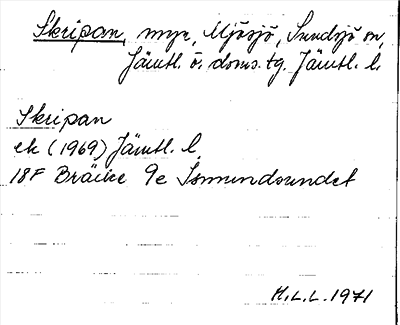 Skripan, myr, Mjösjö, Sundsjö sn,
Jämtl. ö. doms. tg. Jämtl. l.
Skripan
ek (1969) Jämtl. l.
18F Bräcke 9e Ismundsundet
H.L.L. 1971